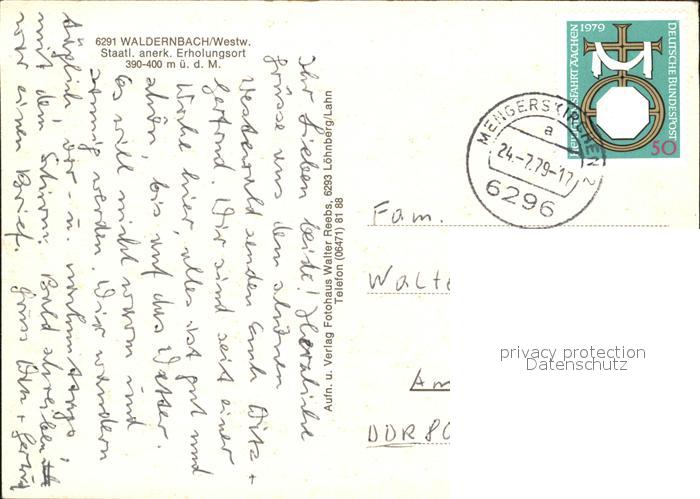 6291 WALDERNBACH/Westw.
Staatl. anerk. Erholungsort
390-400 m ü. d. M.
Ihr Lieben beide! Herzliche
Grüsse aus dem schönen
Westerwald senden Euch +
Gertrud. Wir sind seit einer
Woche hier, alles ist gut und
schön, bis auf das Wetter.
Es will nicht warm und
sonnig werden. Wir wandern
täglich, vor u. nachmittags,
mit dem Schirm. Bald schreiben
wir einen Brief. Gruss +
Aufn. u. Verlag Fotohaus Walter Reebs, 6293 Löhnberg/Lahn
Telefon (06471) 81 88
1979
AACHEN
DEUTSCHE BUNDESPOST
50
MENGERSKIRCHEN 2
a
24.-7.79-17
6296
Fam.
Walte
Am
DDR 80
privacy protection
Datenschutz